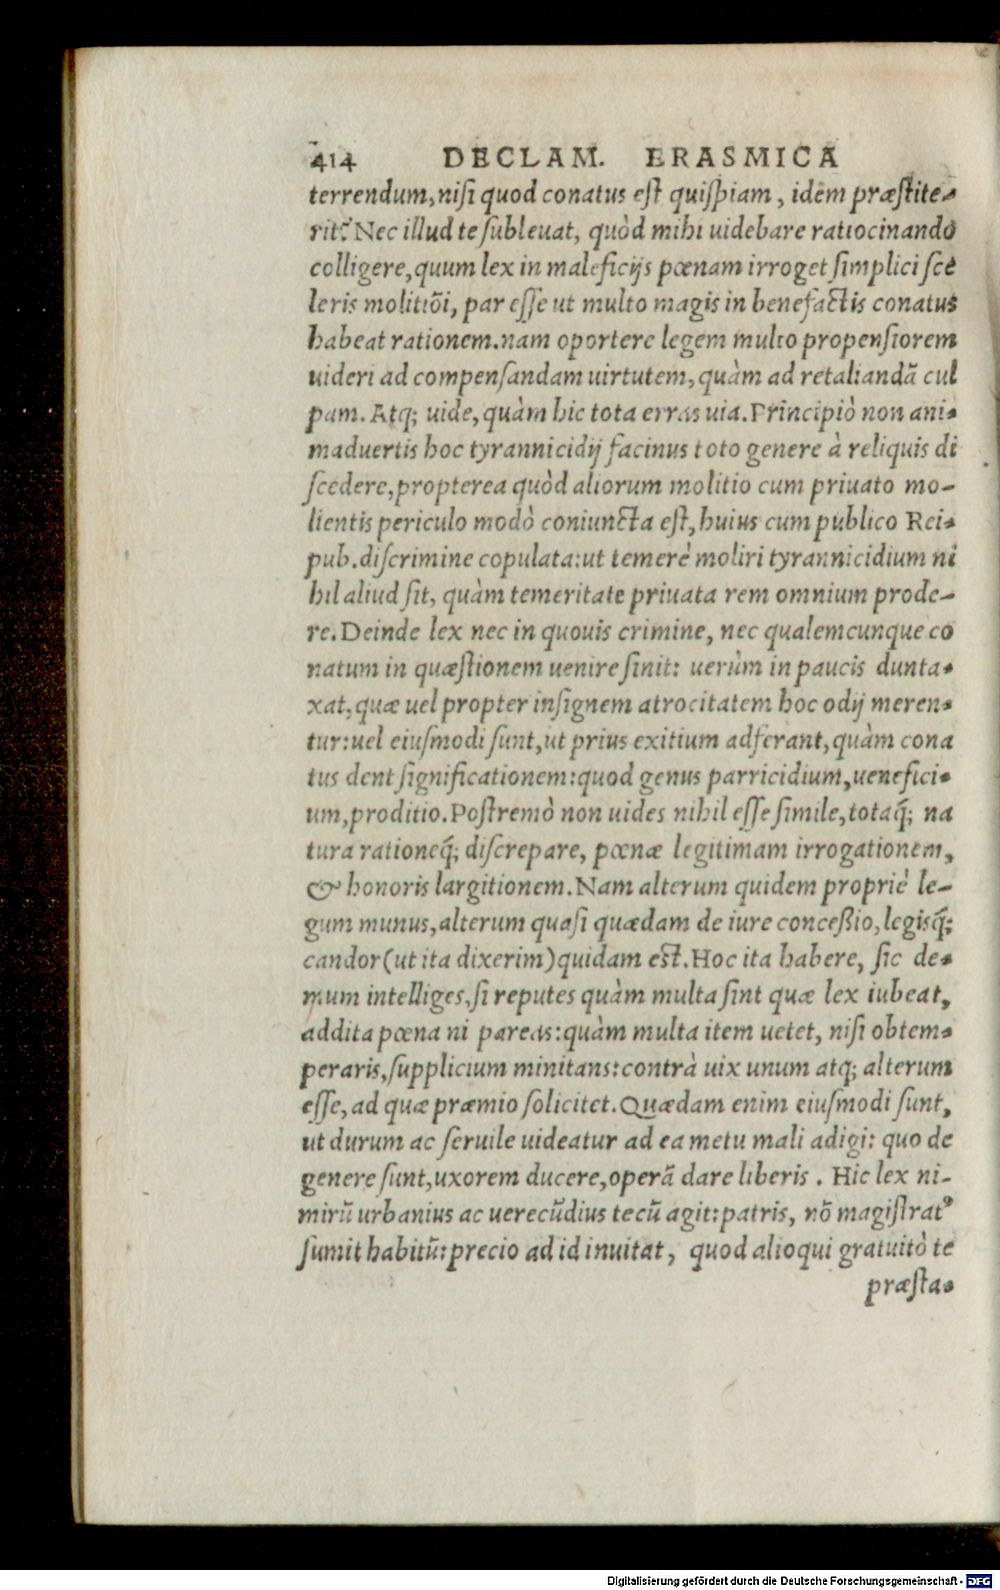 414 DECLAM. ERASMICA
terrendum, nisi quod conatus est quispiam, idẽ præstite-
rit? Nec illud te subleuat, quòd mihi uidebare ratiocinando
colligere, quum lex in maleficijs pœnam irroget simplici sce
leris molitiõi, par esse ut multo magis in benefactis conatus
habeat rationem. nam oportere legem multo propensiorem
uideri ad compensandam uirtutem, quàm ad retaliandã cul
pam. Atq; uide, quàm hic tota erras uia. Principiò non ani-
maduertis hoc tyrannicidij facinus toto genere à reliquis di
scedere, propterea quòd aliorum molitio cum priuato mo-
lientis periculo modò coniuncta est, huius cum publico Rei-
pub. discrimine copulata: ut temerè moliri tyrannicidium ni
hil aliud sit, quàm temeritate priuata rem omnium prode-
re. Deinde lex nec in quouis crimine, nec qualemcunque co
natum in quæstionem uenire sinit: uerùm in paucis dunta-
xat, quæ uel propter insignem atrocitatem hoc odij meren-
tur: uel eiusmodi sunt, ut prius exitium adferant, quàm cona
tus dent significationem: quod genus parricidium, uenefici-
um, proditio. Postremò non uides nihil esse simile, totaq́; na
tura rationeq́; discrepare, pœnæ legitimam irrogationem,
& honoris largitionem. Nam alterum quidem propriè le-
gum munus, alterum quasi quædam de iure concessio, legisq́;
candor (ut ita dixerim) quidam est. Hoc ita habere, sic de-
mum intelliges, si reputes quàm multa sint quæ lex iubeat,
addita pœna ni pareas: quàm multa item uetet, nisi obtem-
peraris, supplicium minitans: contrà uix unum atq; alterum
esse, ad quæ præmio solicitet. Quædam enim eiusmodi sunt,
ut durum ac seruile uideatur ad ea metu mali adigi: quo de
genere sunt, uxorem ducere, operã dare liberis. Hic lex ni-
mirũ urbanius ac uerecũdius tecũ agit: patris, nõ magistratꝰ
sumit habitũ: precio ad id inuitat, quod alioqui gratuitò te
præsta-
Digitalisierung gefördert durch die Deutsche Forschungsgemeinschaft - DFG